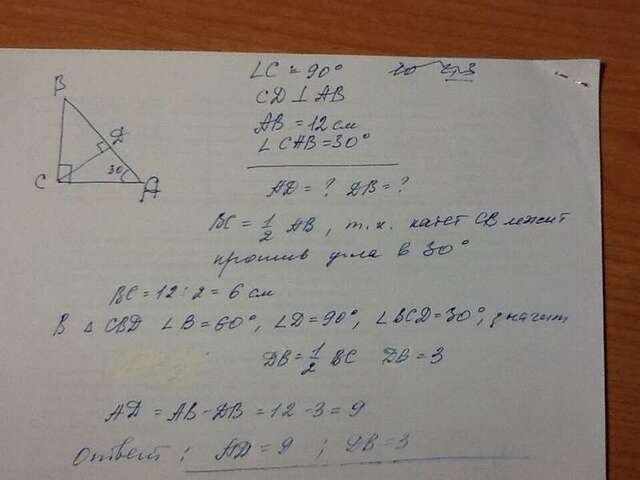 ∠C = 90°
CD ⊥ AB
AB = 12 см
∠CAB = 30°
AD = ? DB = ?
B
D
30
C
A
BC = 1/2 AB, т.к. катет CB лежит
против угла в 30°
BC = 12 : 2 = 6 см
В △ CBD ∠B = 60°, ∠D = 90°, ∠BCD = 30°, значит
DB = 1/2 BC DB = 3
AD = AB - DB = 12 - 3 = 9
Ответ: AD = 9 ; DB = 3